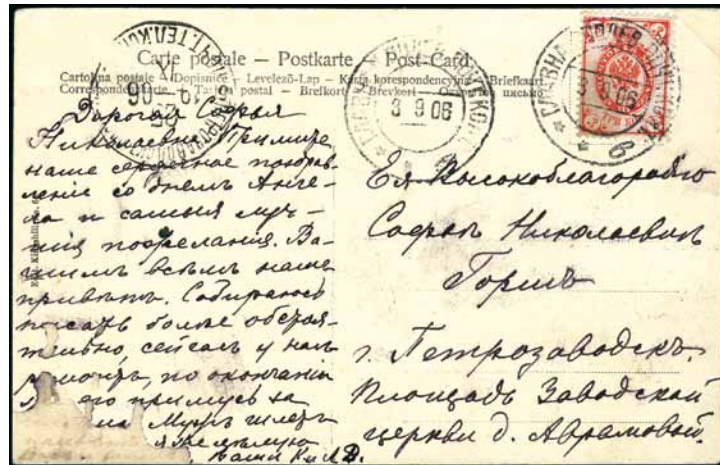 Carte postale — Postkarte — Post-Card
Cartolina postale — Dopisnice — Levelező-Lap — Karta korespondencyjna — Briefkaart
Correspondenzkarte — Tarjeta postal — Brefkort — Brevkort — Открытое письмо
3 9 06
3 9 06
ТРИ КОП
Дорогая Софья
Николаевна! Примите
наше сердечное поздрав-
ленiе со днемъ Анге-
ла и самыя луч-
шiя пожеланiя. Ва-
шимъ всѣмъ наше
привѣтъ. Собираюсь
писать болѣе обстоя-
тельно, сейчасъ у насъ
ремонтъ, по окончанiи
его примусь за
Мужъ шлетъ
Ваши К и А.В.
Ея Высокоблагородiю
Софьѣ Николаевнѣ
г. Петрозаводскъ.
Площадь Заводской
церкви д. Аврамовой.